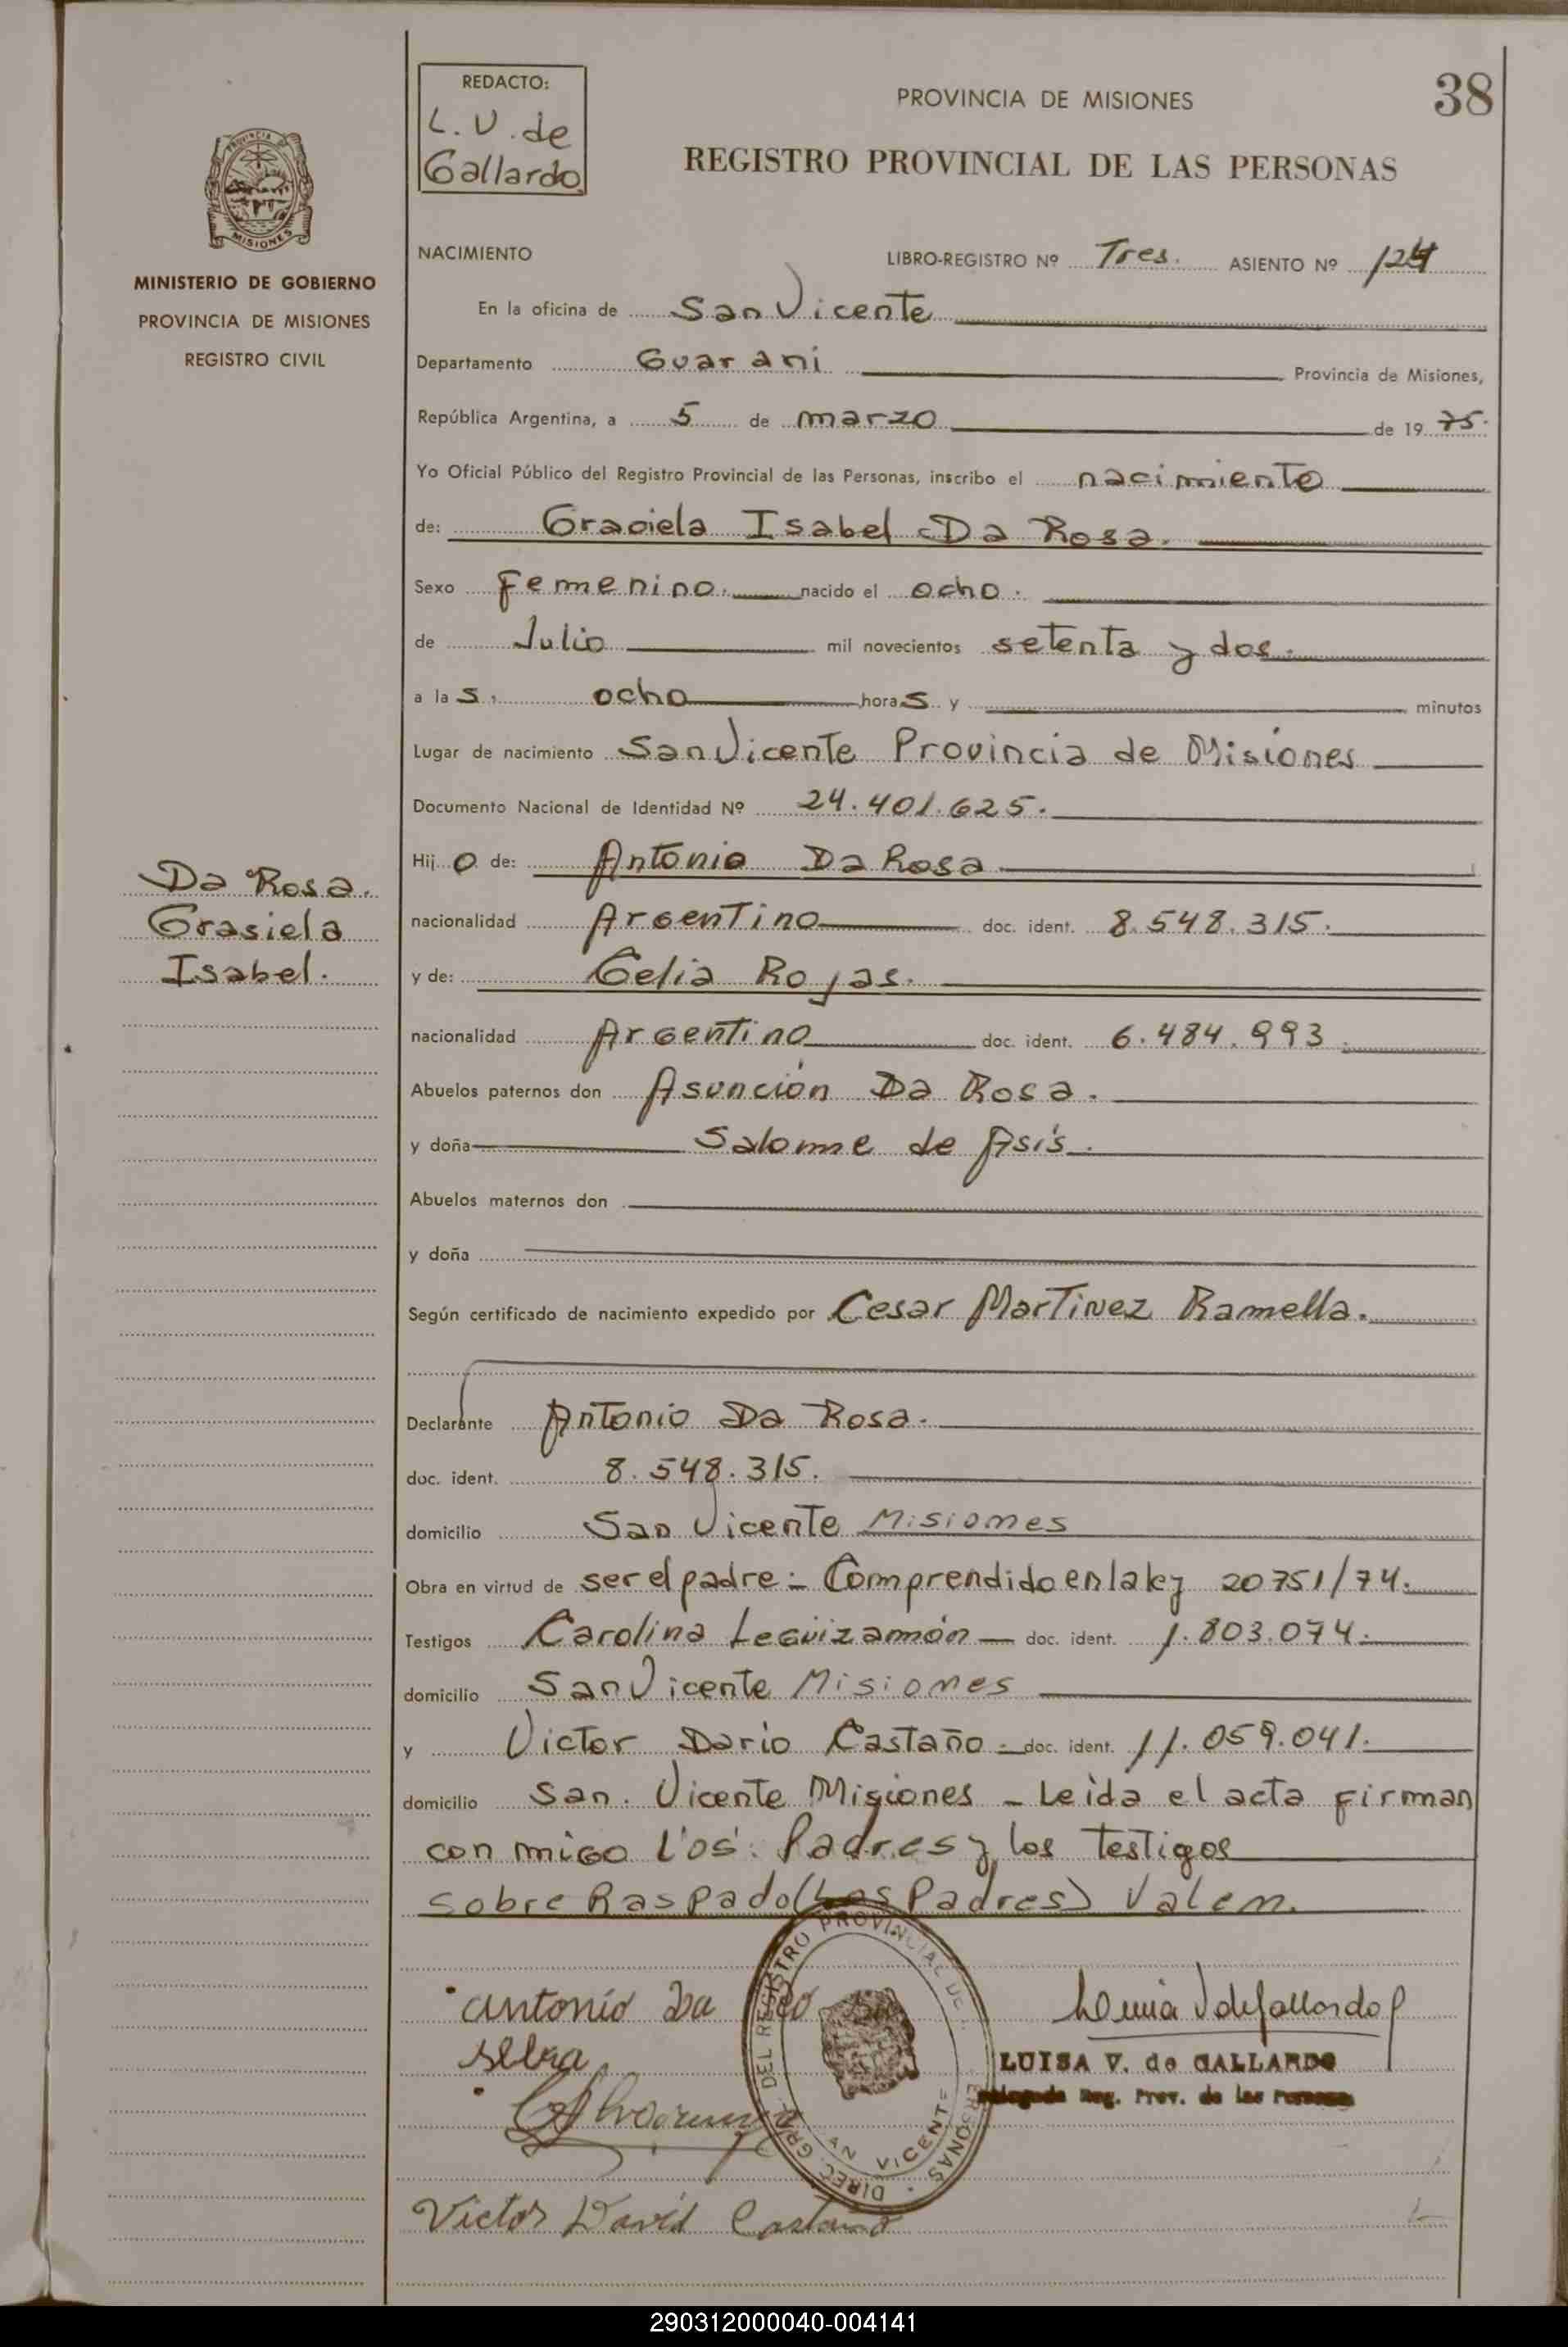 REDACTO:
L. V. de
Gallardo
PROVINCIA DE MISIONES
38
REGISTRO PROVINCIAL DE LAS PERSONAS
PROVINCIA DE
MISIONES
MINISTERIO DE GOBIERNO
PROVINCIA DE MISIONES
REGISTRO CIVIL
NACIMIENTO LIBRO-REGISTRO Nº Tres. ASIENTO Nº 124
En la oficina de San Vicente
Departamento Guarani Provincia de Misiones,
República Argentina, a 5 de marzo de 19 75.
Yo Oficial Público del Registro Provincial de las Personas, inscribo el nacimiento
de: Graciela Isabel Da Rosa.
Sexo femenino. nacido el ocho.
de Julio mil novecientos setenta y dos.
a la s. ocho hora s y minutos
Lugar de nacimiento San Vicente Provincia de Misiones
Documento Nacional de Identidad Nº 24.401.625.
Hij o de: Antonio Da Rosa
Da Rosa.
Grasiela
Isabel.
nacionalidad Argentino doc. ident. 8.548.315.
y de: Celia Rojas.
nacionalidad Argentino doc. ident. 6.484.993.
Abuelos paternos don Asunción Da Rosa.
y doña Salome de Asís.
Abuelos maternos don
y doña
Según certificado de nacimiento expedido por Cesar Martinez Ramella.
Declarante Antonio Da Rosa.
doc. ident. 8.548.315.
domicilio San Vicente Misiones
Obra en virtud de ser el padre:- Comprendido en la ley 20751/74.
Testigos Carolina Legüizamón doc. ident. 1.803.074.
domicilio San Vicente Misiones
y Victor Dario Castaño - doc. ident. 11.059.041.
domicilio San. Vicente Misiones - Leida el acta firman
con migo Los: Padres y los testigos
sobre Raspado (Los Padres) Valen.
antonio Da Ro
LUISA V. de GALLARDO
Delegada Reg. Prov. de las Personas
DIREC. GRAL. DEL REGISTRO PROVINCIAL DE L. PERSONAS
SAN VICENTE
Victor David Castano
290312000040-004141